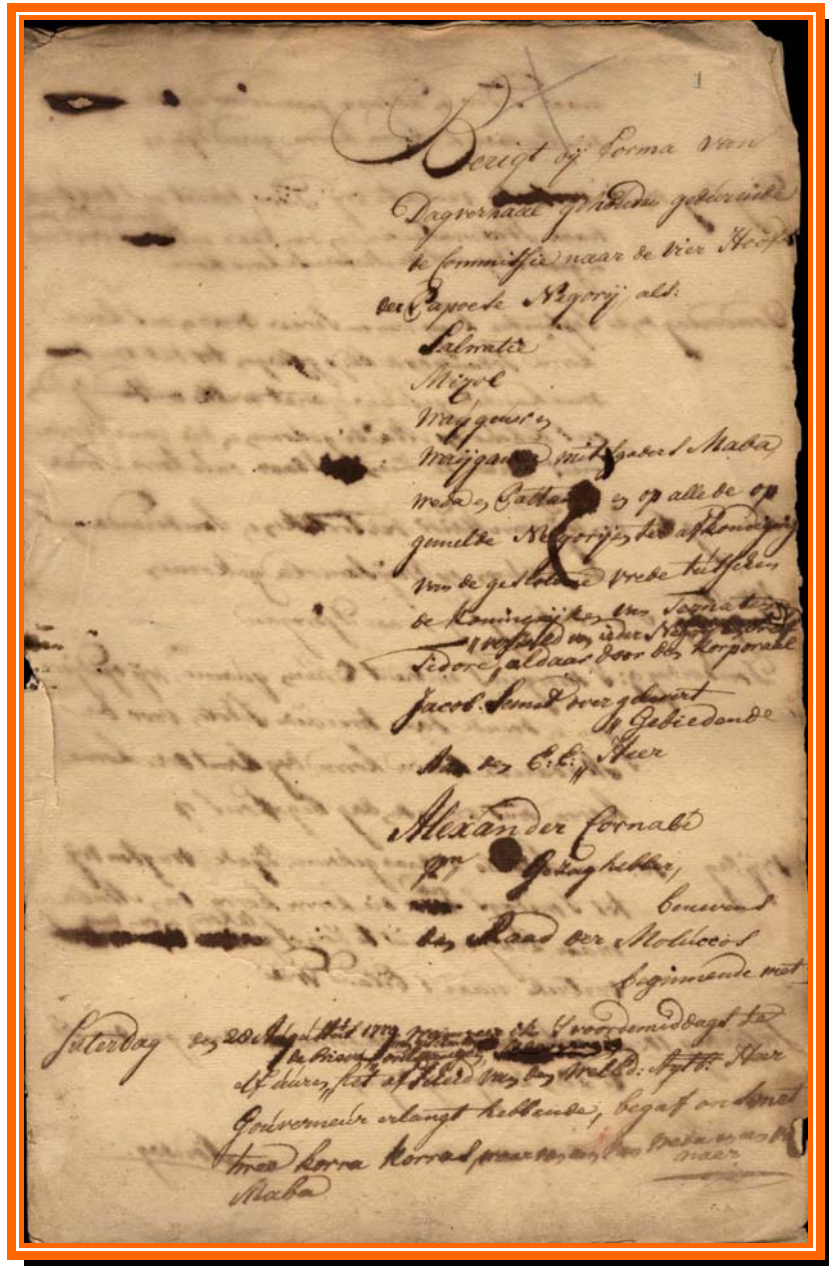 1
Berigt bij Forma van
Dagverhaal gehouden geduurende
de Commissie naar de vier Hoofd
der Papoese Negorij als:
Salwatie
Mixol
Waijgeeuw en
Waijgamma mitsgaders Maba,
weda en Pattanij en op alle de op
gemelde Negorijen ter afkondiging
van de geslotene vrede tusschen
de Koningrijken van Ternaten
van ieder Negorij
Tidore, aldaar door den Korporaal
Jacob Semet overgeleevert
Gebiedende
Aan den E: E: Heer
Alexander Cornabé
Gezaghebber,
benevens
den Raad der Moluccos
beginnende met
Saterdag den 28 Augustus 1779 wanneer ik 's voordemiddags te
de Brieven ontfangen
elf uuren, het afscheid van den WelEd: Agtb: Heer
Gouverneur erlangt hebbende, begaf on met
twee korra korras, waar van een van Weda en een
naer
Maba